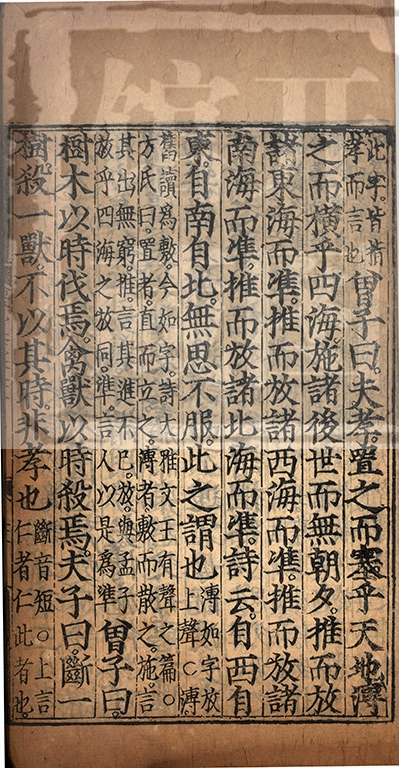 此字。皆指
孝而言也
曾子曰。夫孝。置之而塞乎天地。溥
之而橫乎四海。施諸後世而無朝夕。推而放
諸東海而準。推而放諸西海而準。推而放諸
南海而準。推而放諸北海而準。詩云。自西自
東。自南自北。無思不服。此之謂也
溥如字放
上聲○溥
舊讀爲敷。今如字。詩大雅文王有聲之篇。○
方氏曰。置者。直而立之。溥者。敷而散之。施言
其出無窮。推言其進不已。放。與孟子
放乎四海之放同。準。言人以是爲準
曾子曰。
樹木以時伐焉。禽獸以時殺焉。夫子曰。斷一
樹。殺一獸。不以其時。非孝也
斷音短。○上言
仁者仁此者也。